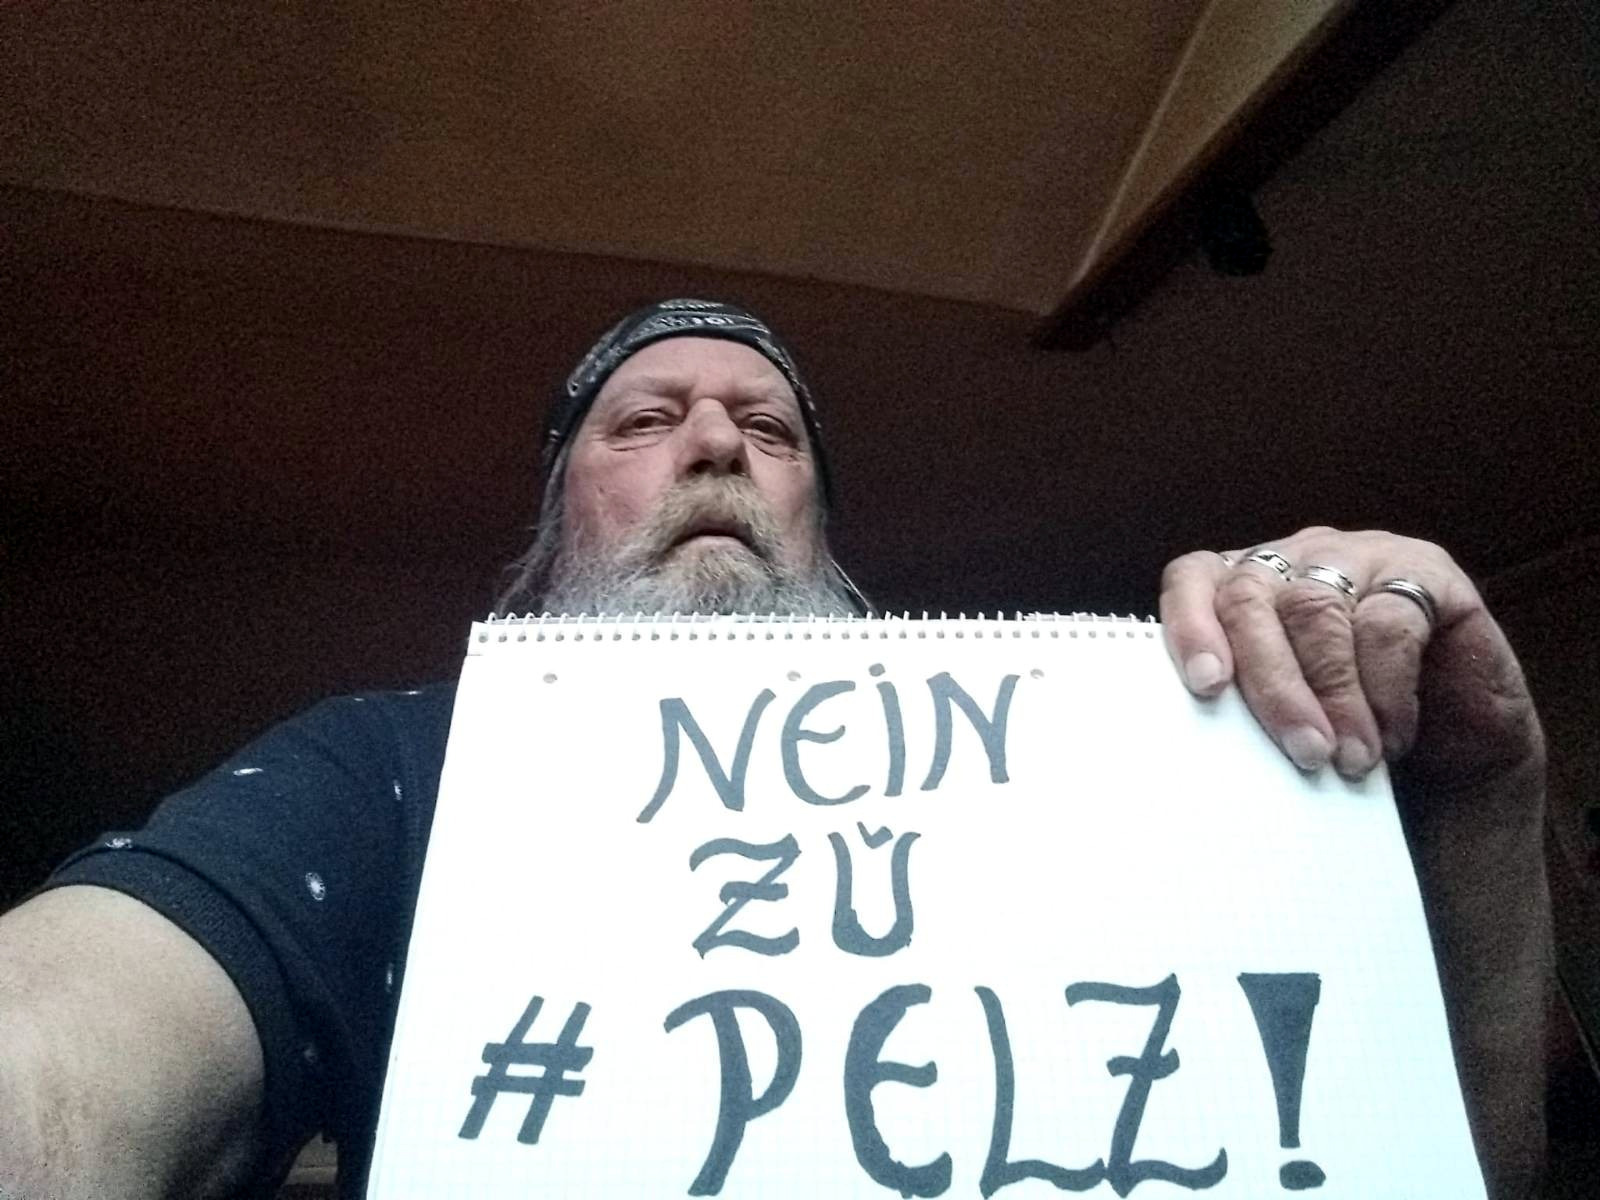 NEiN
ZŬ
# PELZ!